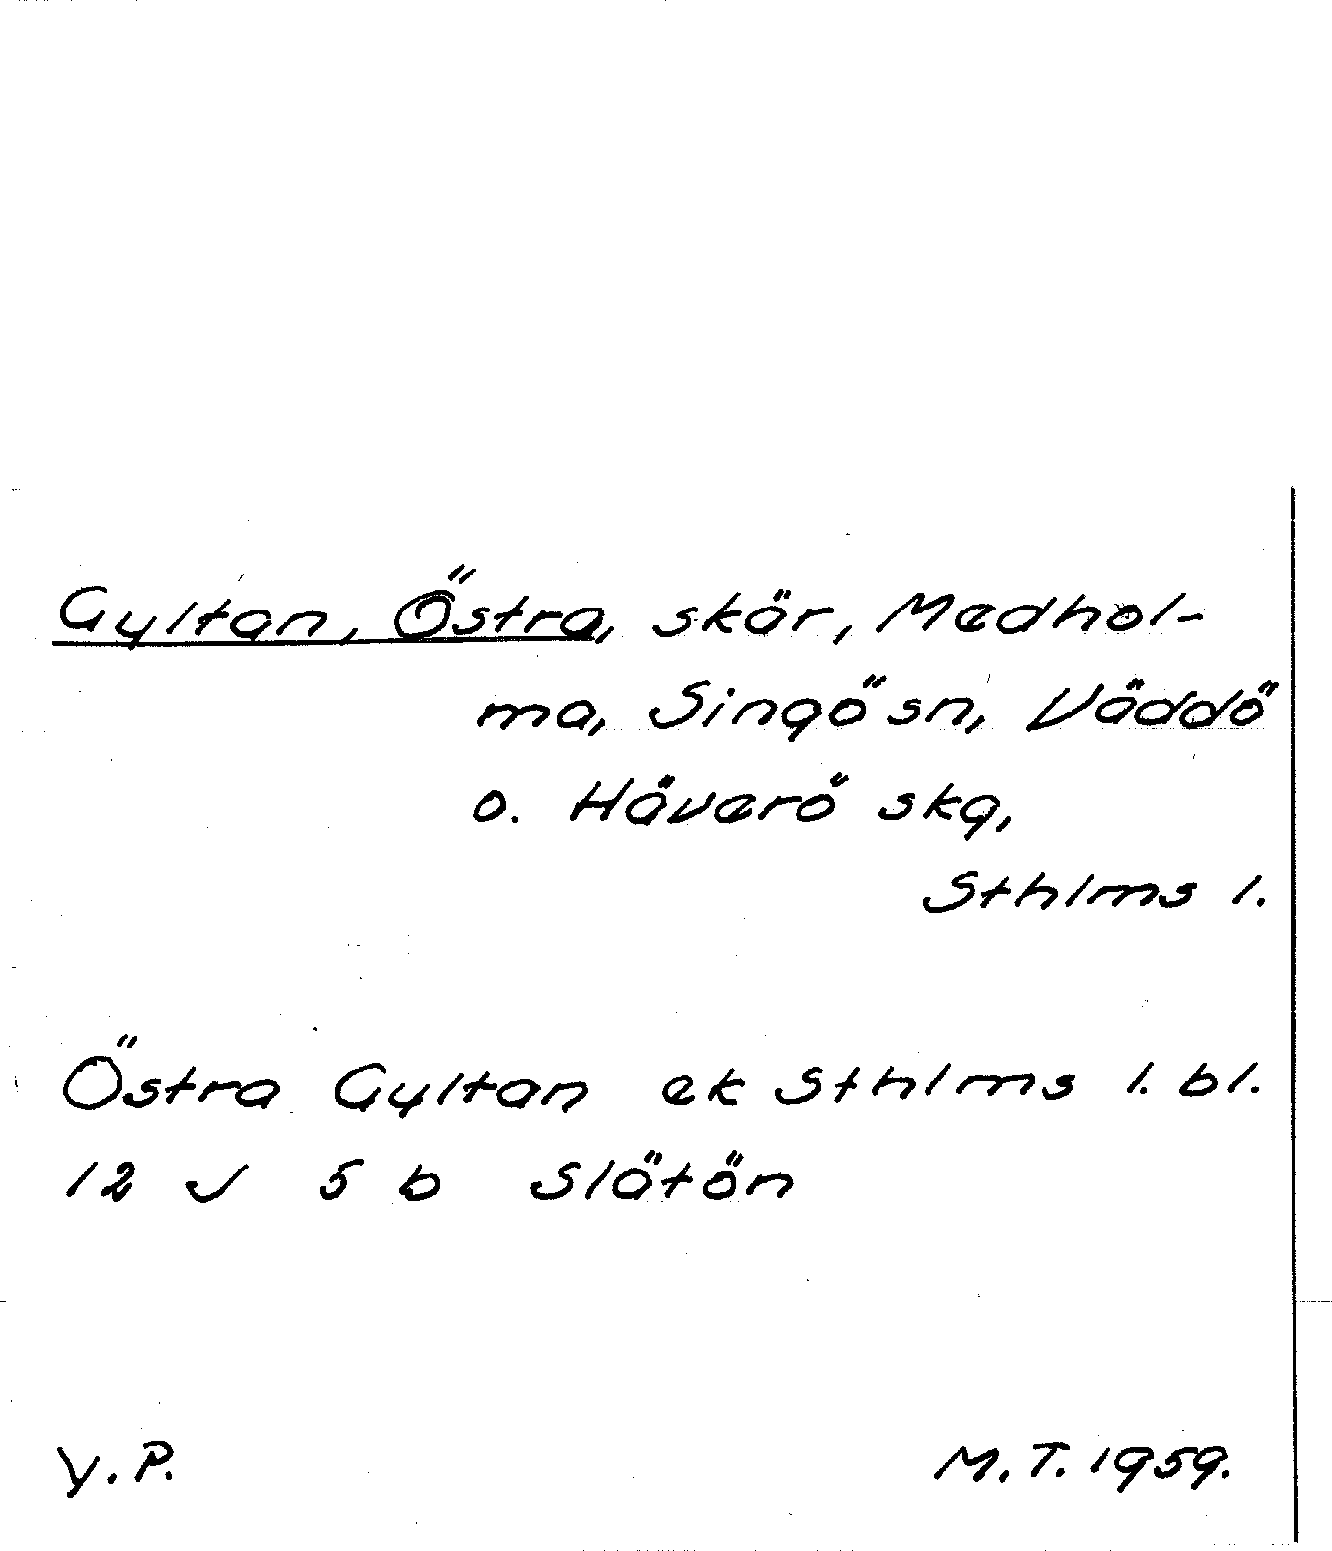 Gyltan, Östra, skär, Medhol-
ma, Singö sn, Väddö
o. Häverö skg,
Sthlms l.
Östra Gyltan ek Sthlms l. bl.
12 J 5 b Slätön
Y.P. M.T. 1959.